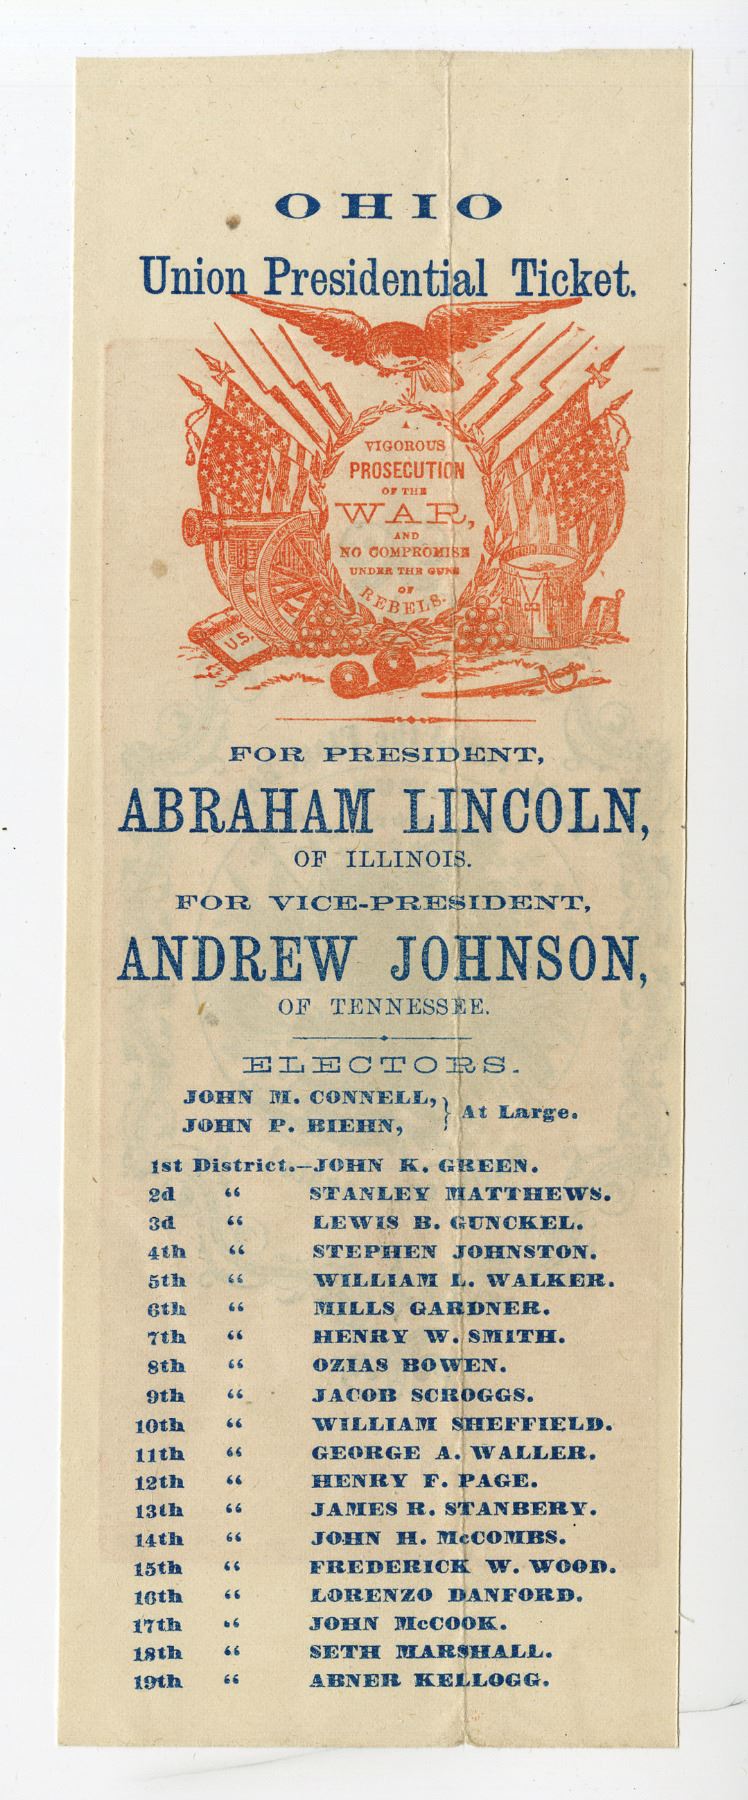 OHIO
Union Presidential Ticket.
A
VIGOROUS
PROSECUTION
OF THE
WAR,
AND
NO COMPROMISE
UNDER THE GUNS
OF
REBELS.
U.S.
FOR PRESIDENT,
ABRAHAM LINCOLN,
OF ILLINOIS.
FOR VICE-PRESIDENT,
ANDREW JOHNSON,
OF TENNESSEE.
ELECTORS.
JOHN M. CONNELL,
JOHN P. BIEHN, } At Large.
1st District.—JOHN K. GREEN.
2d “ STANLEY MATTHEWS.
3d “ LEWIS B. GUNCKEL.
4th “ STEPHEN JOHNSTON.
5th “ WILLIAM L. WALKER.
6th “ MILLS GARDNER.
7th “ HENRY W. SMITH.
8th “ OZIAS BOWEN.
9th “ JACOB SCROGGS.
10th “ WILLIAM SHEFFIELD.
11th “ GEORGE A. WALLER.
12th “ HENRY F. PAGE.
13th “ JAMES R. STANBERY.
14th “ JOHN H. McCOMBS.
15th “ FREDERICK W. WOOD.
16th “ LORENZO DANFORD.
17th “ JOHN McCOOK.
18th “ SETH MARSHALL.
19th “ ABNER KELLOGG.